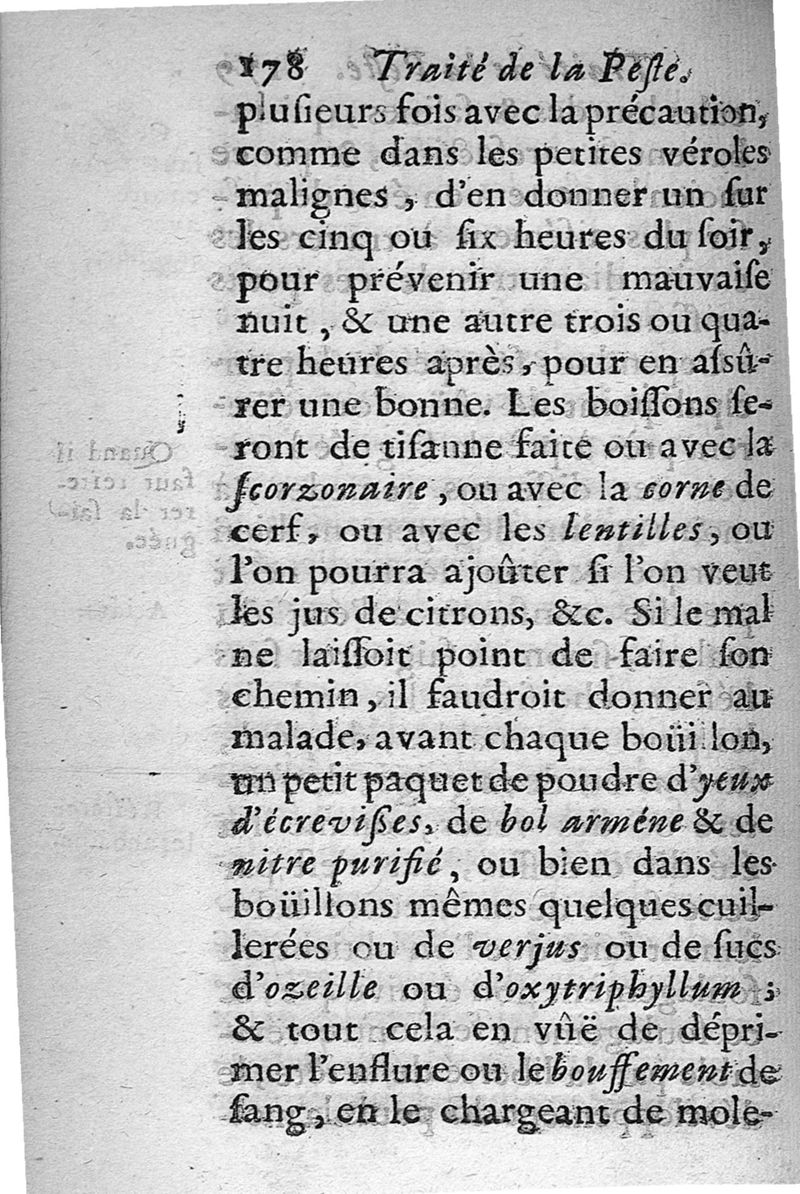 178 Traité de la Peſte.
pluſieurs fois avec la précaution,
comme dans les petites véroles
malignes, d'en donner un ſur
les cinq ou ſix heures du ſoir,
pour prévenir une mauvaiſe
nuit, & une autre trois ou qua-
tre heures après, pour en aſsû-
rer une bonne. Les boiſſons ſe-
ront de tiſanne faite ou avec la
ſcorzonaire, ou avec la corne de
cerf, ou avec les lentilles, ou
l'on pourra ajoûter ſi l'on veut
les jus de citrons, &c. Si le mal
ne laiſſoit point de faire ſon
chemin, il faudroit donner au
malade, avant chaque boüillon,
un petit paquet de poudre d'yeux
d'écreviſſes, de bol arméne & de
nitre purifié, ou bien dans les
boüillons mêmes quelques cuil-
lerées ou de verjus ou de ſucs
d'ozeille ou d'oxytriphyllum ;
& tout cela en vûë de dépri-
mer l'enflure ou le bouffement de
ſang, en le chargeant de mole-